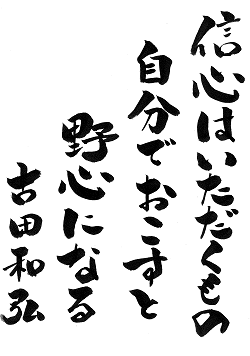 信心はいただくもの
自分でおこすと
野心になる
古田和弘